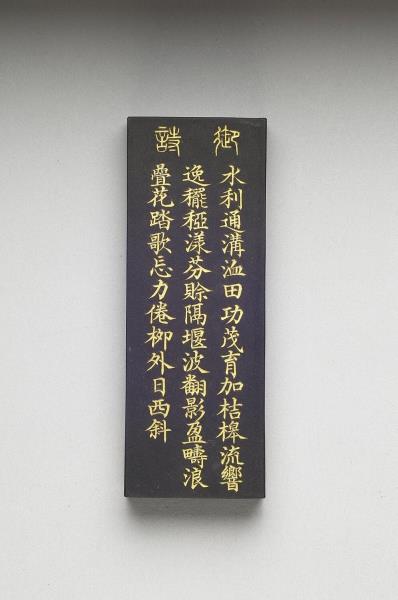 御詩
水利通溝洫田功茂育加桔槹流響
逸䆉稏漾芬賖隔堰波翻影盈疇浪
疊花踏歌忘力倦柳外日西斜